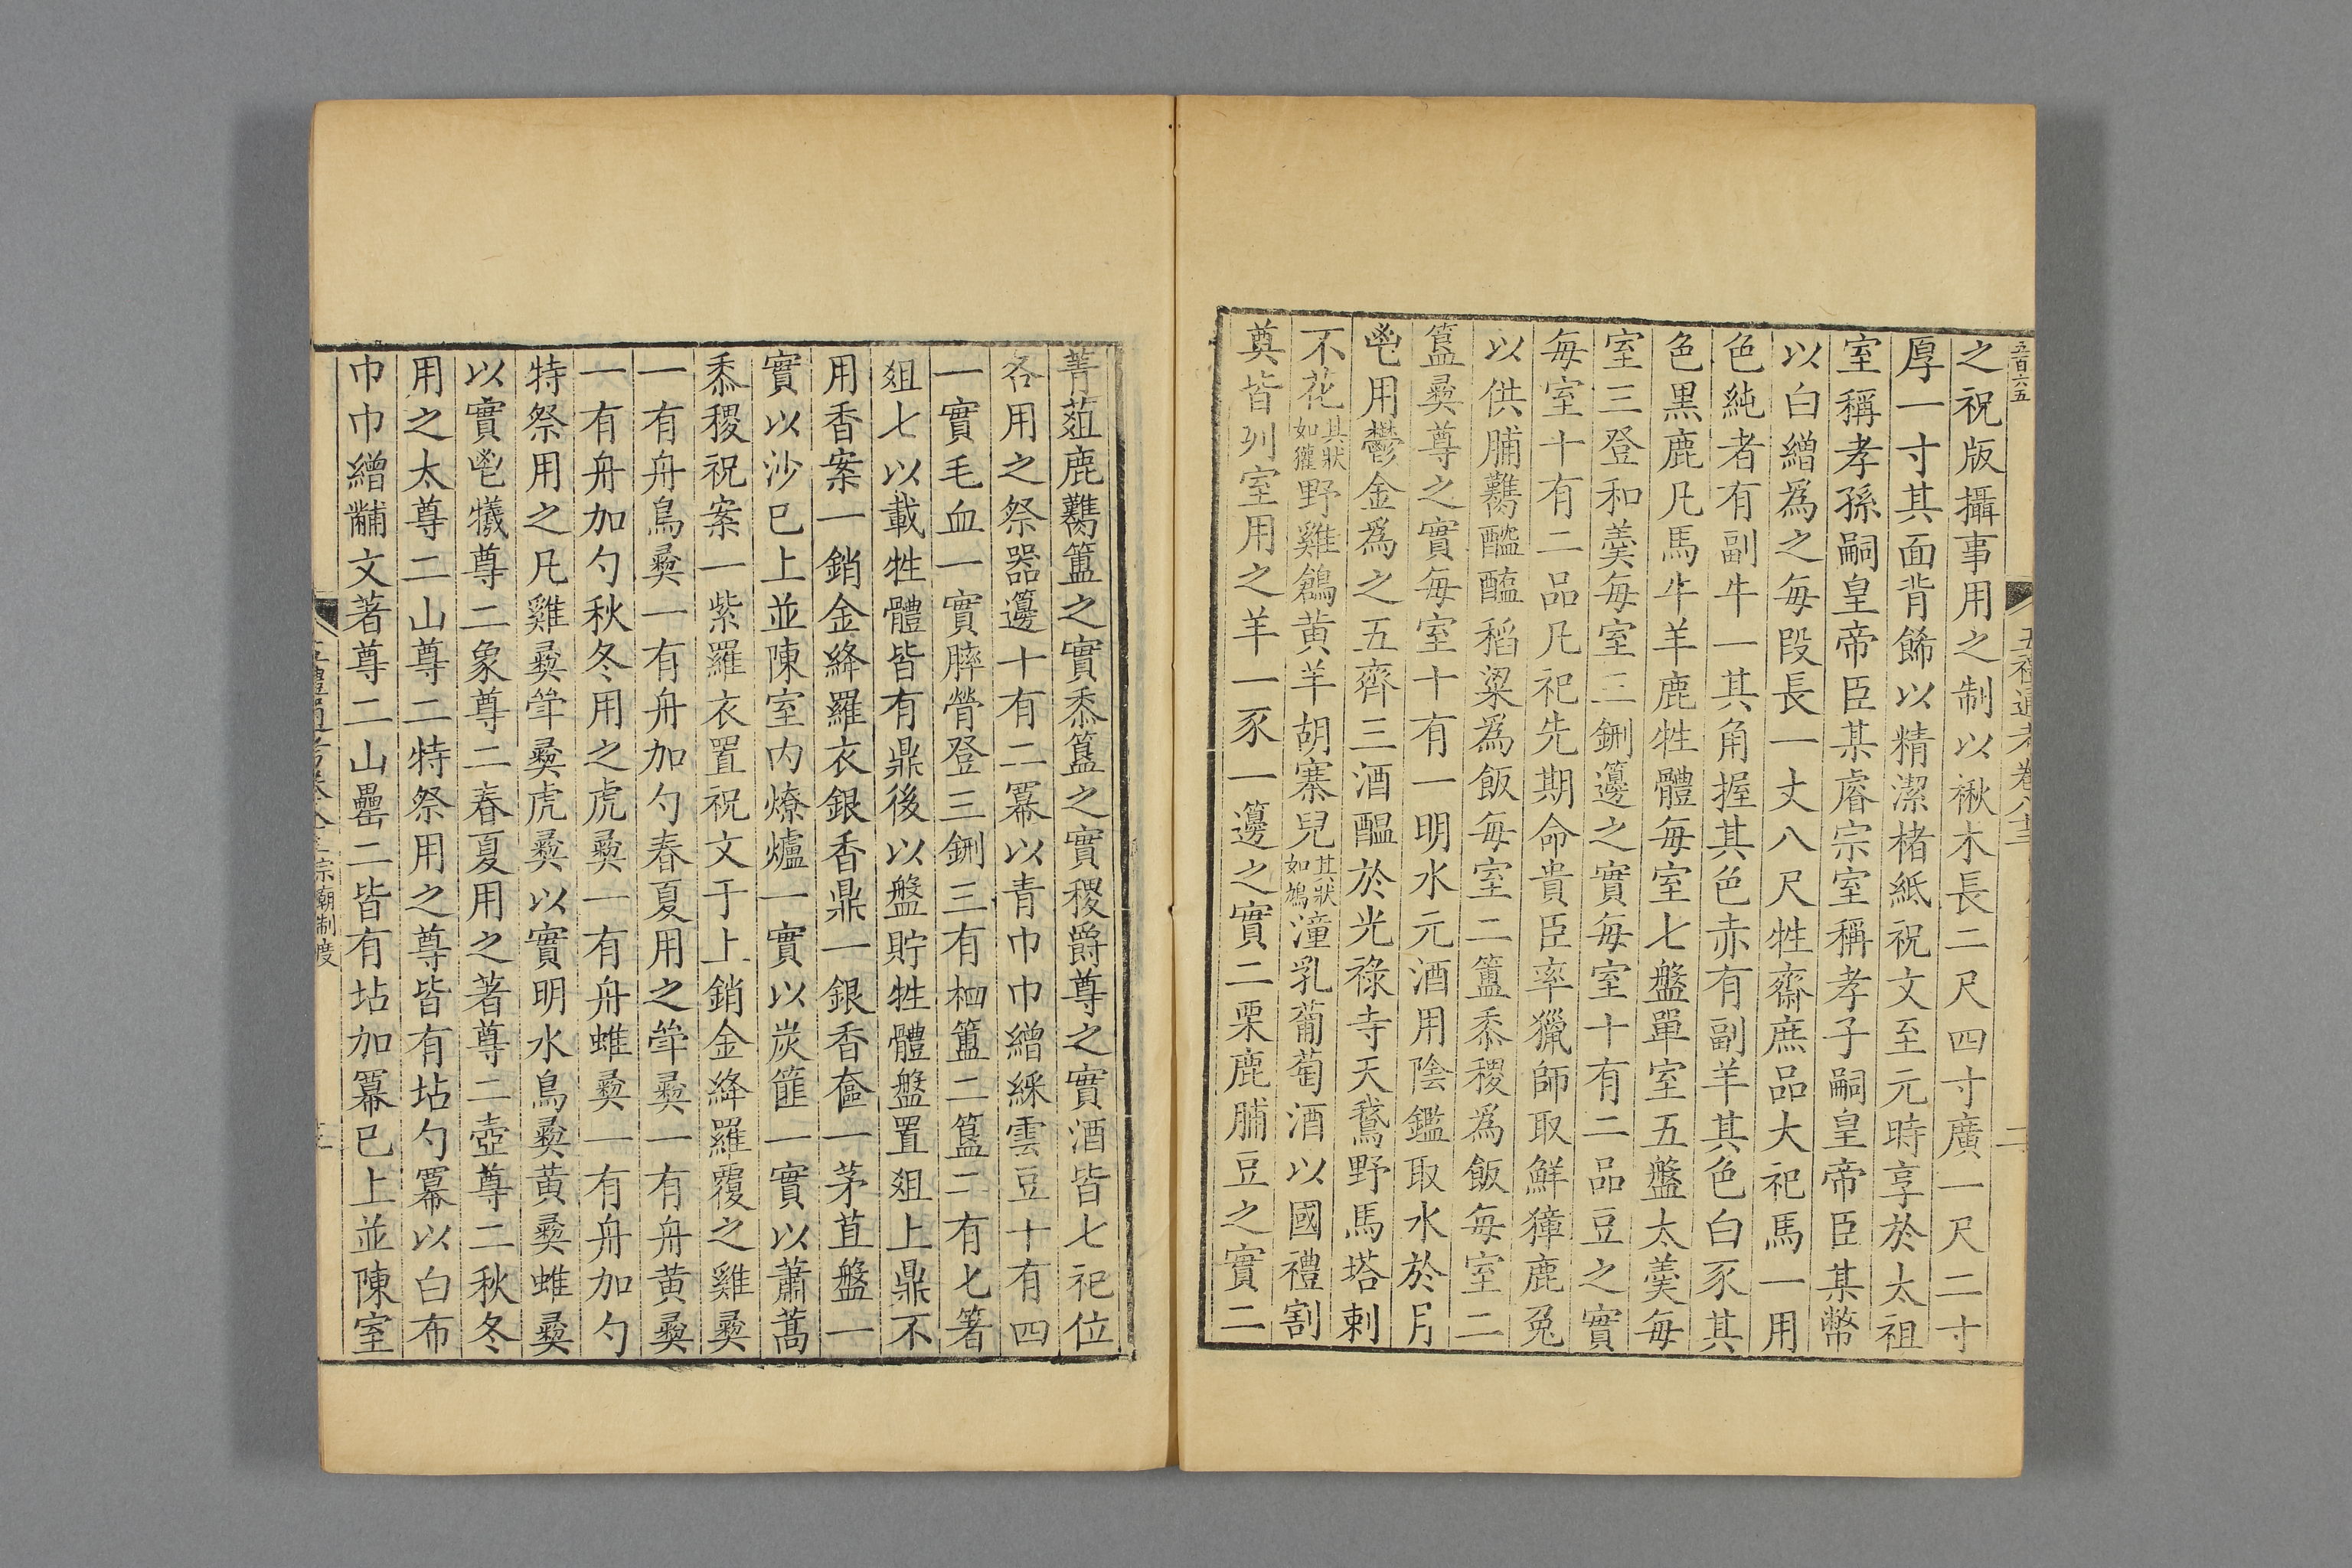 五百六五
五禮通考卷八十三
二
之祝版攝事用之制以楸木長二尺四寸廣一尺二寸
厚一寸其面背飾以精潔楮紙祝文至元時享於太祖
室稱孝孫嗣皇帝臣某睿宗室稱孝子嗣皇帝臣某幣
以白繒爲之每段長一丈八尺牲齋庶品大祀馬一用
色純者有副牛一其角握其色赤有副羊其色白豕其
色黑鹿凡馬牛羊鹿牲體每室七盤單室五盤太羹每
室三登和羹每室三鉶籩之實每室十有二品豆之實
每室十有二品凡祀先期命貴臣率獵師取鮮獐鹿兔
以供脯臡醢醓稻粱爲飯每室二簠黍稷爲飯每室二
簋彞尊之實每室十有一明水元酒用陰鑑取水於月
鬯用鬱金爲之五齊三酒醞於光祿寺天鵞野馬塔剌
不花其狀如獾野雞鶬黄羊胡寨兒其狀如鳩潼乳葡萄酒以國禮割
奠皆列室用之羊一豕一籩之實二栗鹿脯豆之實二
菁菹鹿臡簠之實黍簋之實稷爵尊之實酒皆七祀位
各用之祭器籩十有二冪以青巾巾繒綵雲豆十有四
一實毛血一實膟膋登三鉶三有柶簠二簋二有匕箸
俎七以載牲體皆有鼎後以盤貯牲體盤置俎上鼎不
用香案一銷金絳羅衣銀香鼎一銀香奩一茅苴盤一
實以沙已上並陳室内燎爐一實以炭篚一實以蕭蒿
黍稷祝案一紫羅衣置祝文于上銷金絳羅覆之雞彞
一有舟鳥彞一有舟加勺春夏用之斝彞一有舟黄彞
一有舟加勺秋冬用之虎彞一有舟蜼彞一有舟加勺
特祭用之凡雞彞斝彞虎彞以實明水鳥彞黄彞蜼彞
以實鬯犧尊二象尊二春夏用之著尊二壺尊二秋冬
用之太尊二山尊二特祭用之尊皆有坫勺冪以白布
巾巾繒黼文著尊二山罍二皆有坫加冪已上並陳室
五禮通考卷八十三 宗廟制度
三